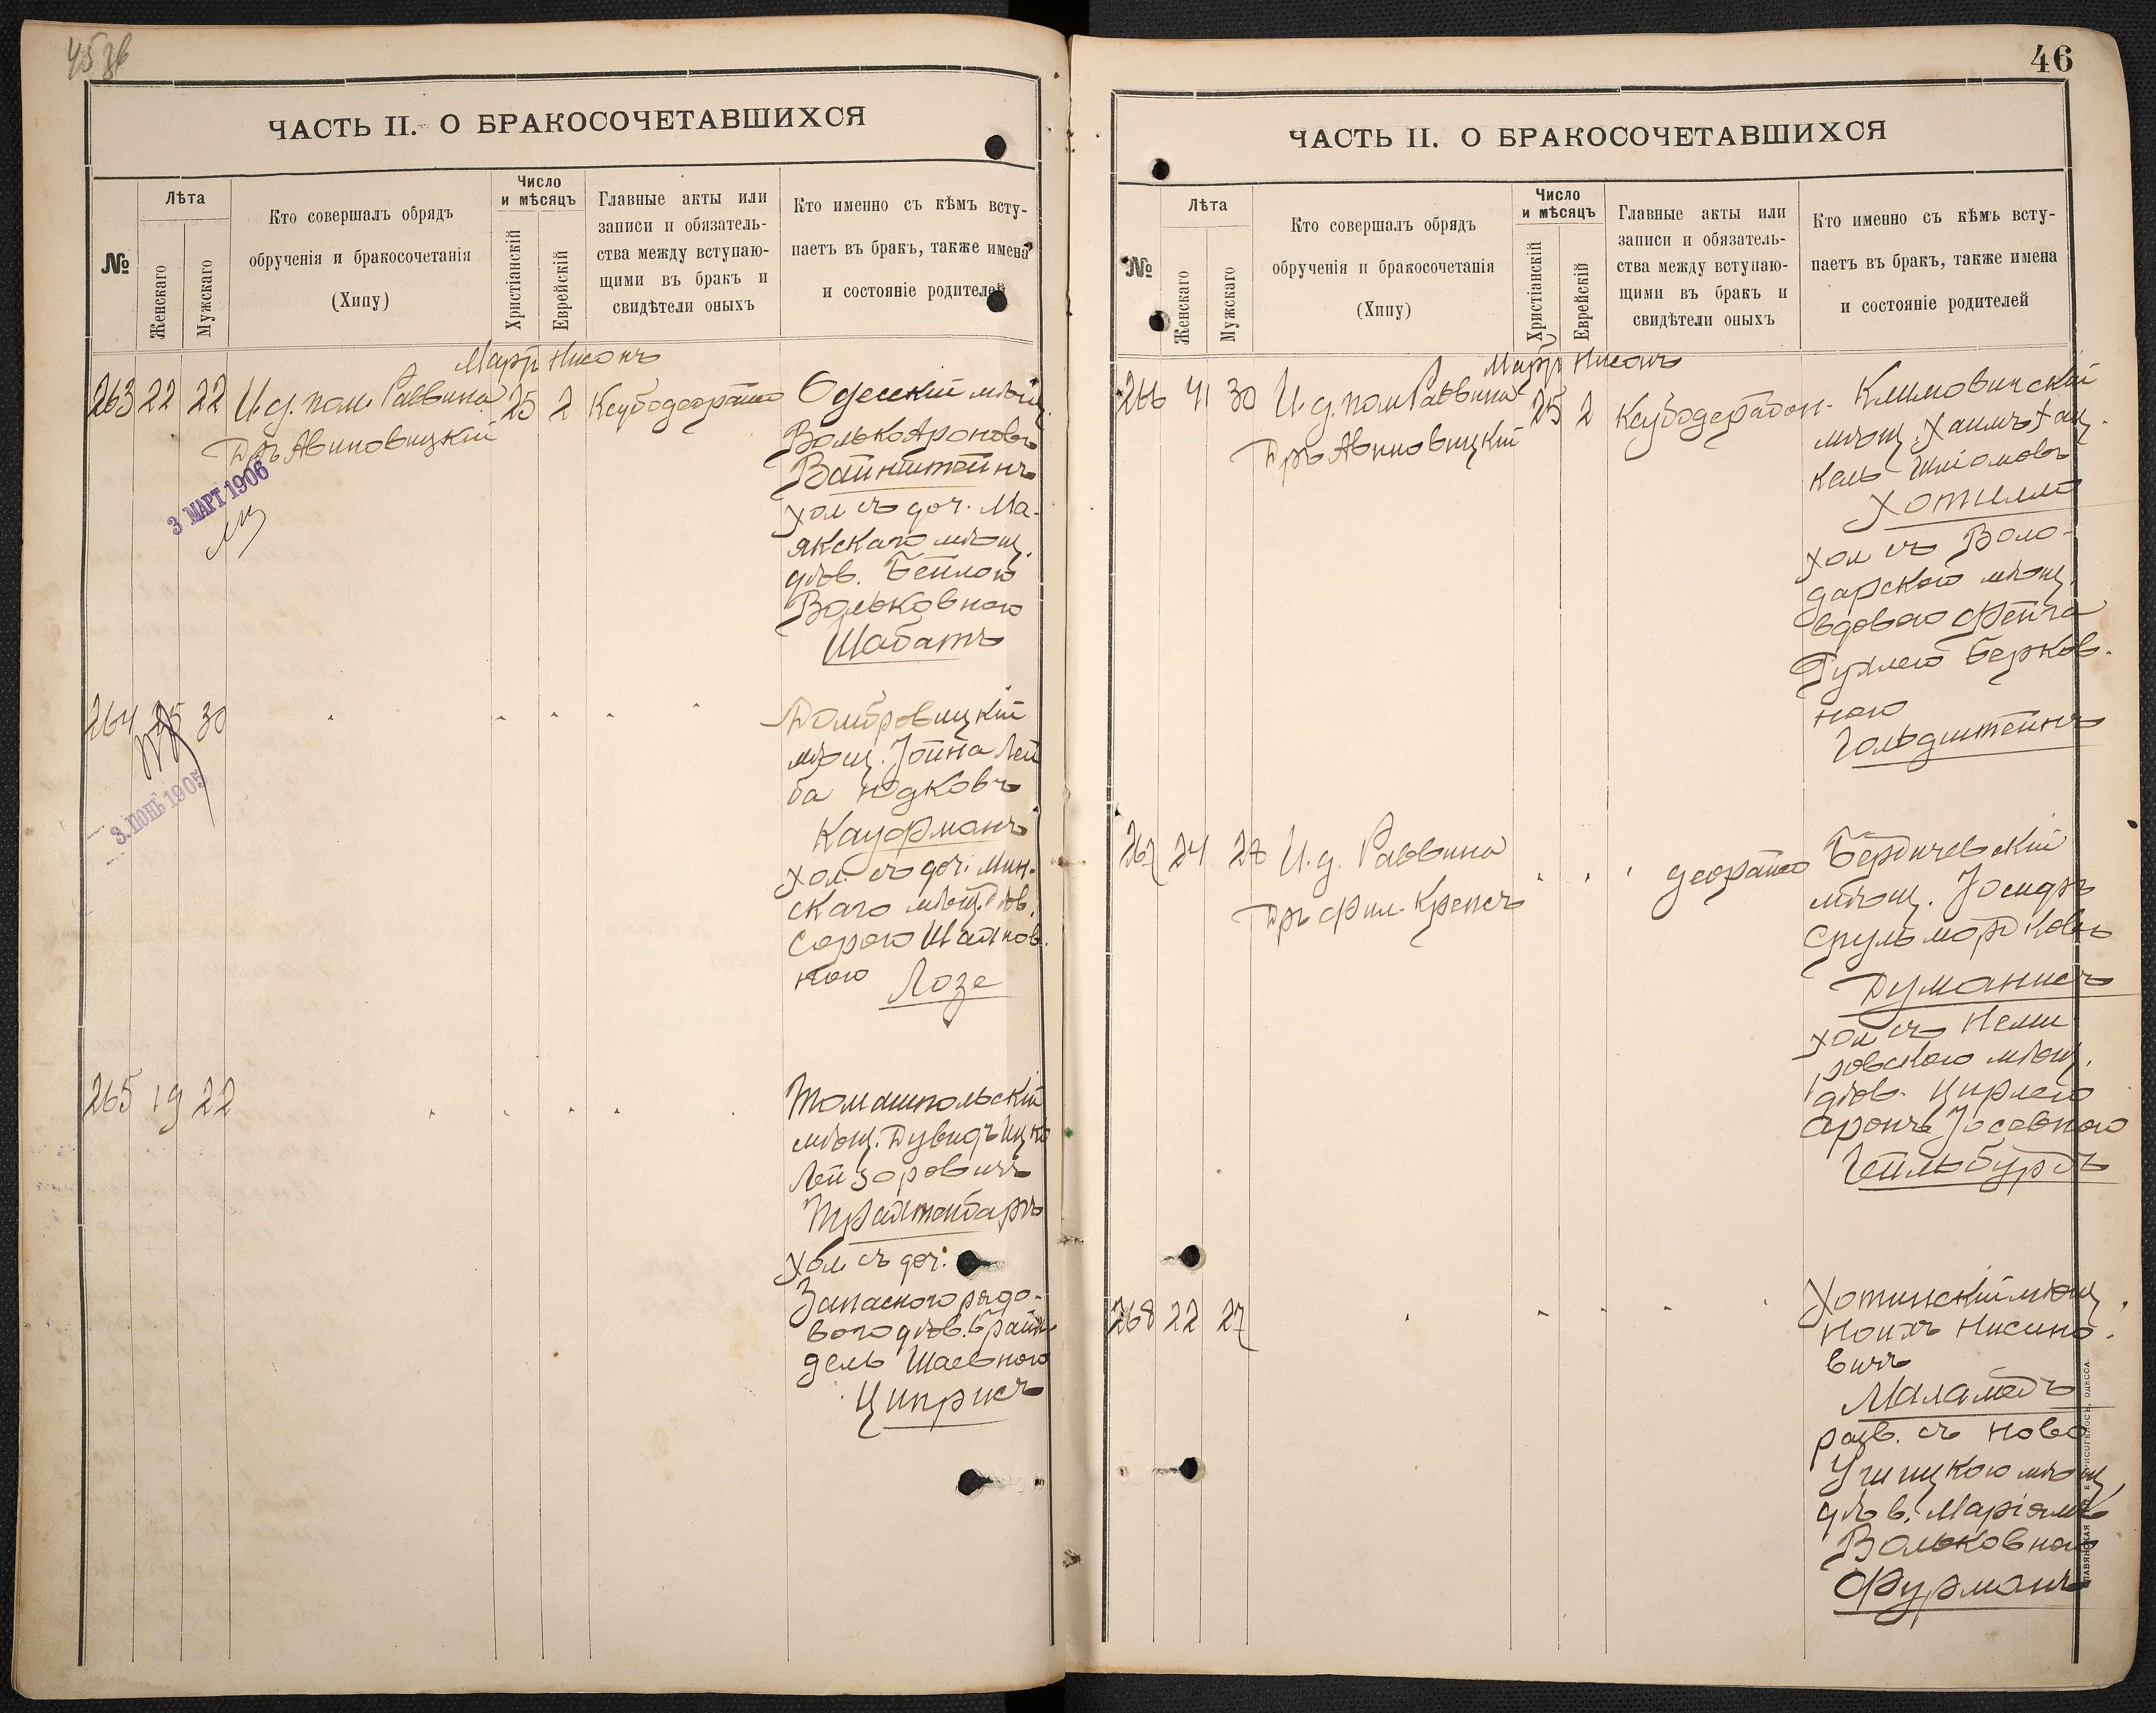 45 зв
ЧАСТЬ II. О БРАКОСОЧЕТАВШИХСЯ
№
Лѣта
Женскаго
Мужскаго
Кто совершалъ обрядъ
обрученія и бракосочетанія
(Хипу)
Число
и мѣсяцъ
Христіанскій
Еврейскій
Главные акты или
записи и обязатель-
ства между вступаю-
щими въ бракъ и
свидѣтели оныхъ
Кто именно съ кѣмъ всту-
паетъ въ бракъ, также имена
и состояніе родителей
Мартъ Нисонъ
263 22 22 И. д. пом. Раввина 25 2
Дръ Авиновицкій
3 МАРТ 1906
Одесскій мѣщ.
Волько Ароновъ
Вайнштейнъ
хол съ доч. Ма-
якскаго мѣщ.
дѣв. Бейлою
Вольковною
Шабатъ
264 25 30
3. ІЮНЬ 1905
Домбровицкій
мѣщ. Іойна Лей
ба Юдковъ
Кауфманъ
хол. съ доч. Мин-
скаго мѣщ. дѣв.
Сорою Шаинов.
ною Лозе
265 19 22
Томашпольскій
мѣщ. Дувидъ Ицко
Лейзоровичъ
Трахтенбаргъ
хол. съ доч.
Запасного рядо-
вого дѣв. Брайн
дель Шаевною
Циприсъ
46
ЧАСТЬ II. О БРАКОСОЧЕТАВШИХСЯ
№
Лѣта
Женскаго
Мужскаго
Кто совершалъ обрядъ
обрученія и бракосочетанія
(Хипу)
Число
и мѣсяцъ
Христіанскій
Еврейскій
Главные акты или
записи и обязатель-
ства между вступаю-
щими въ бракъ и
свидѣтели оныхъ
Кто именно съ кѣмъ всту-
паетъ въ бракъ, также имена
и состояніе родителей
Мартъ Нисонъ
266 41 30 И. д. пом Раввина 25 2
Дръ Авиновицкій
Климовичскій
мѣщ. Хаимъ Хац.
кель Шліомовъ
хол съ Воло-
дарского мѣщ.
вдовою Фейга
Рухлею Берков-
ною
Гольдштейнъ
267 24 28 И. д. Раввина
Дръ Фил. Крепсъ
Бердичевскій
мѣщ. Іосифъ
Сруль Мордковъ
Думанисъ
хол съ Неми
ровского мѣщ.
дѣв. Цирлею
Аронъ Іосевною
Гейльбурдъ
268 22 27
Хотинскій мѣщ.
Ноихъ Нисино-
вичъ
Маламедъ
разв. съ Ново
Ушицкою мѣщ.
дѣв. Маріямъ
Вольковною
Фурманъ